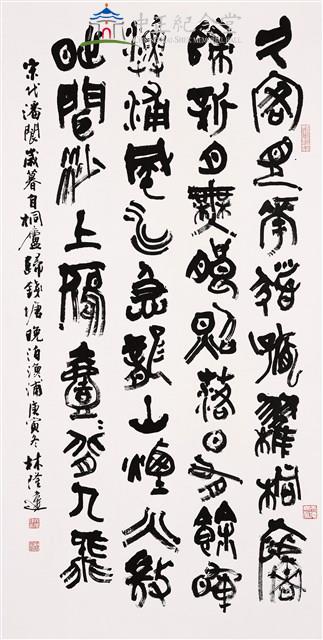 中正紀念堂
CHIANG KAI-SHEK MEMORIAL HALL
久客見華髮孤櫂桐廬
歸新月無朗照落日有餘暉
漁浦風水急龍山煙火微
時聞沙上鴈壹人飛
宋代潘閬歲暮自桐廬歸錢塘晚泊漁浦庚寅冬林隆達